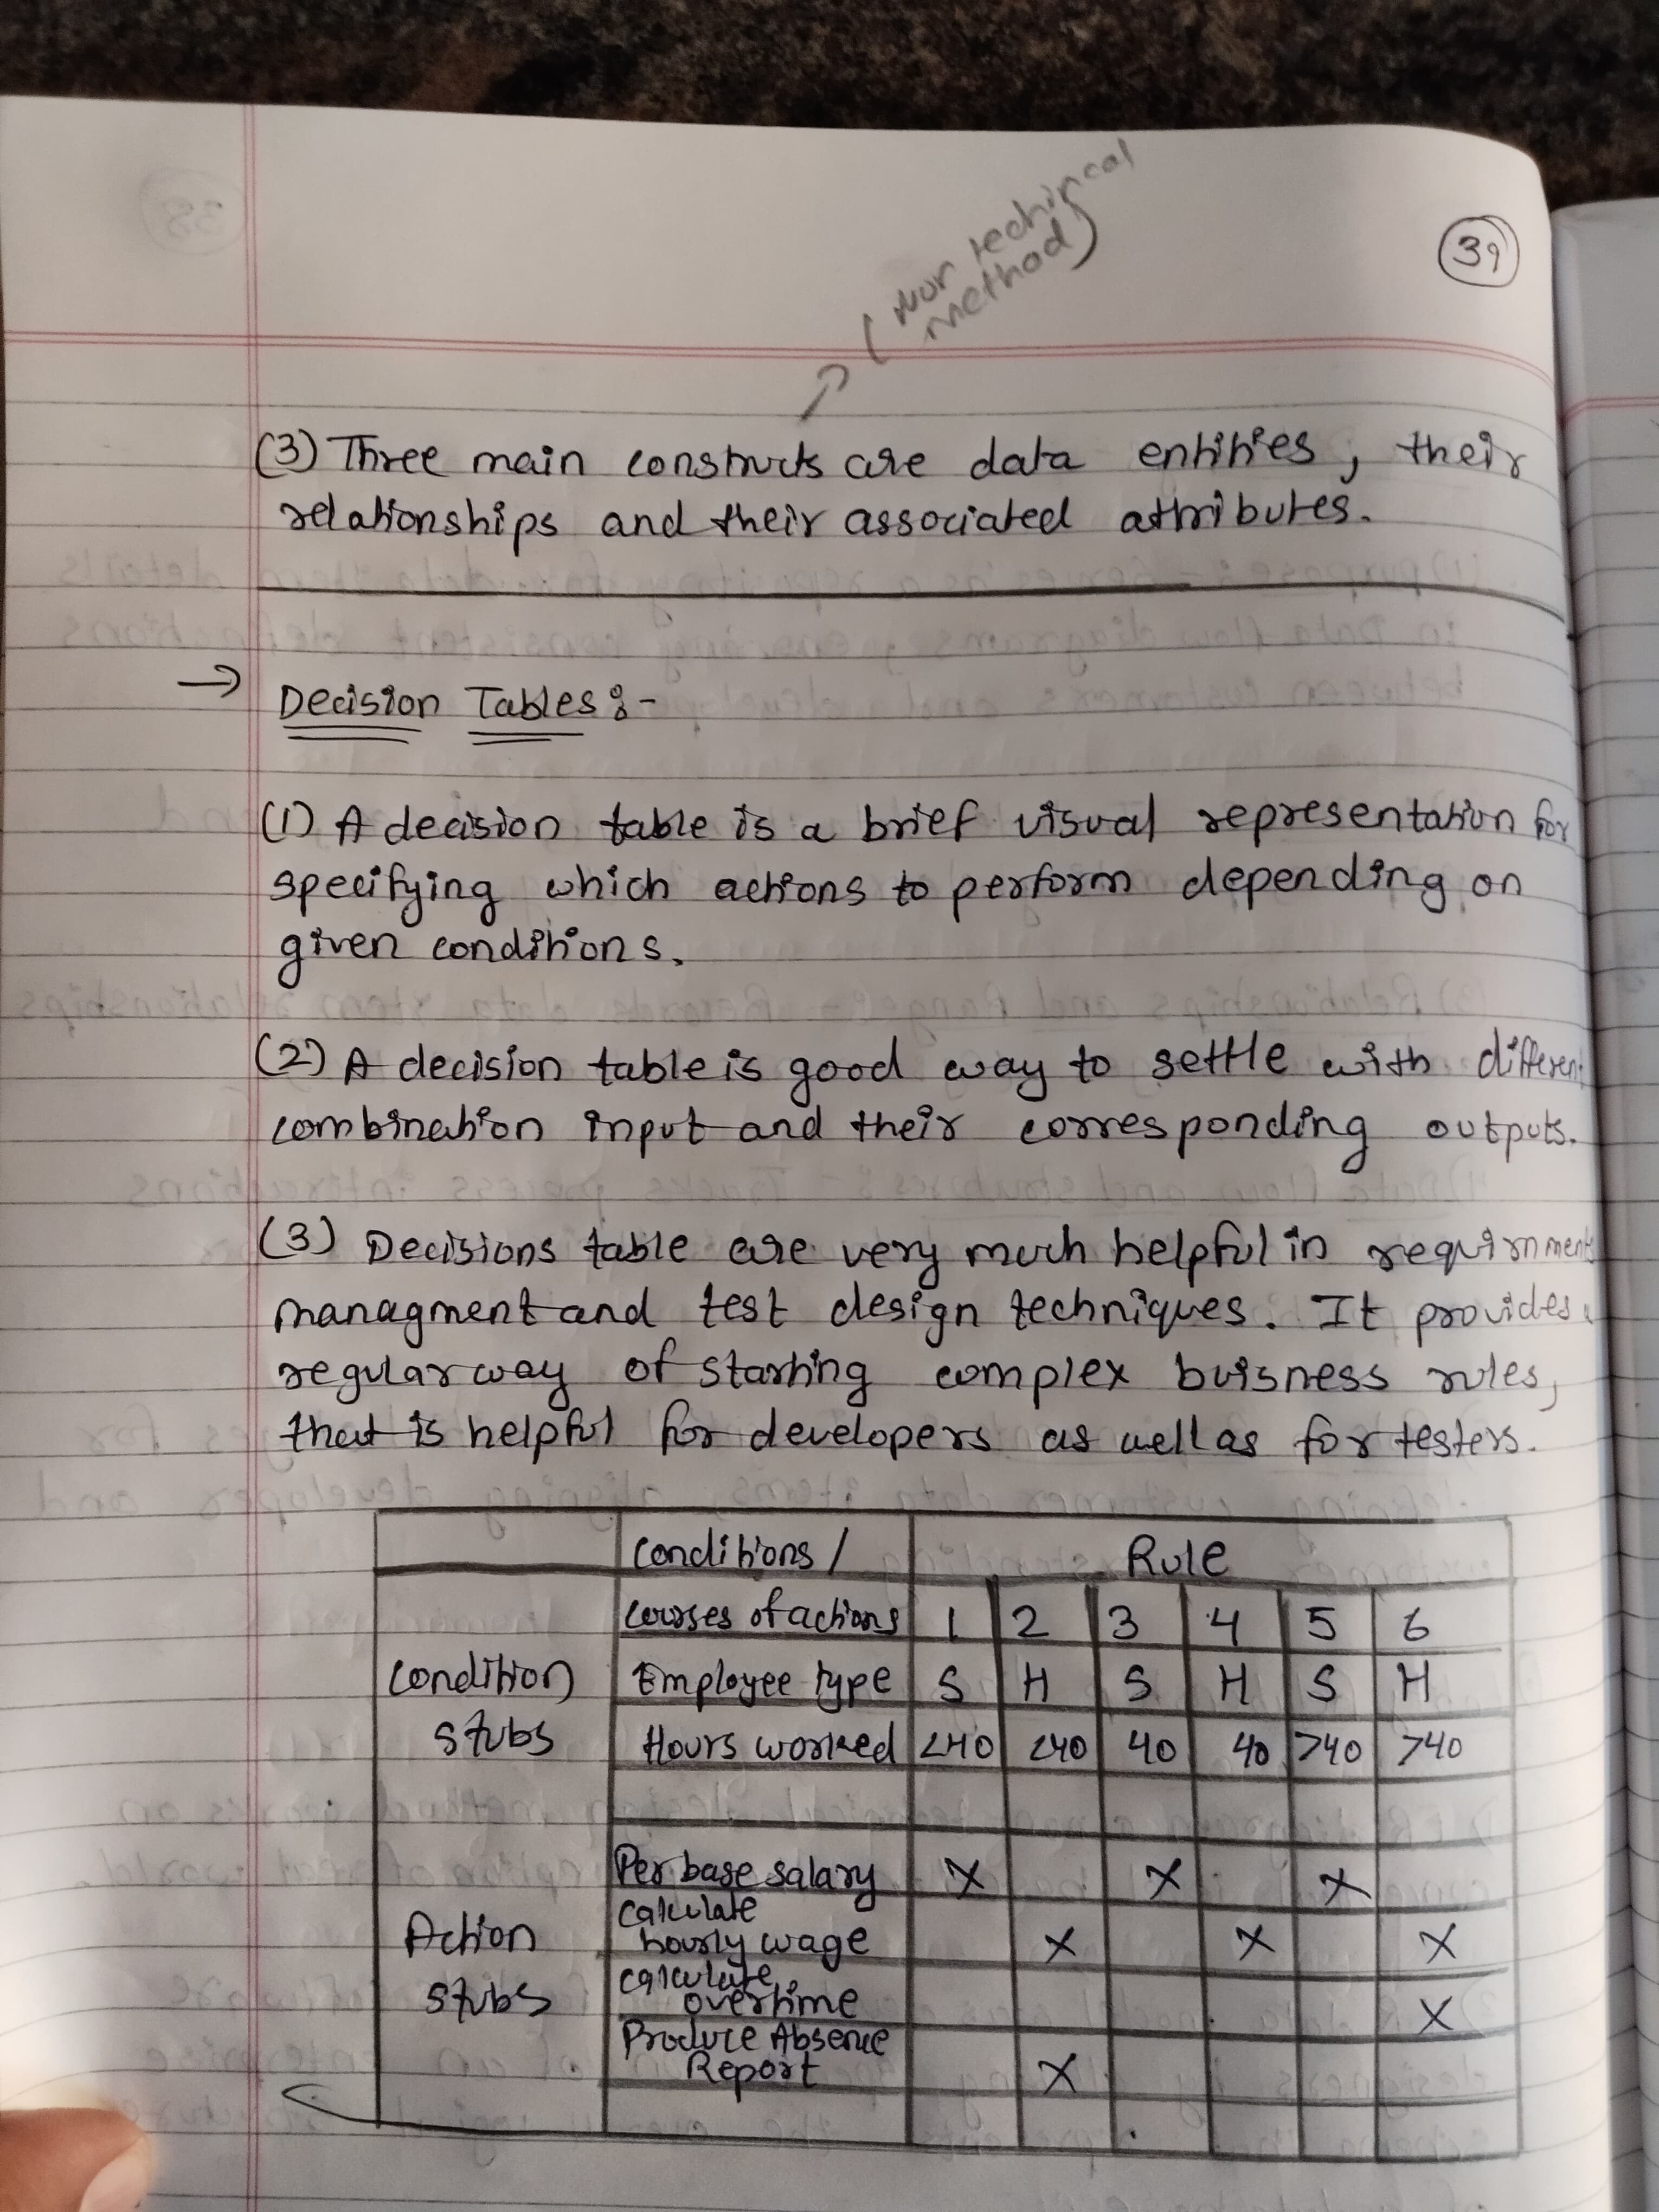 39
(Non techincal
method)
(3) Three main constructs are data entities, their
relationships and their associated attributes.
→ Decision Tables :-
(1) A decision table is a brief visual representation for
specifying which actions to perform depending on
given conditions.
(2) A decision table is good way to settle with different
combination input and their corresponding outputs.
(3) Decisions table are very much helpful in requirnments
managment and test design techniques. It provides
regular way of starting complex buisness rules,
that is helpful for developers as well as for testers.
Conditions / Rule
Courses of actions 1 2 3 4 5 6
Condition Employee type S H S H S H
stubs Hours worked <40 <40 40 40 >40 >40
Per base salary X X X
Calculate
Action hourly wage X X X
stubs Calculate
overtime X
Produce Absence
Report X